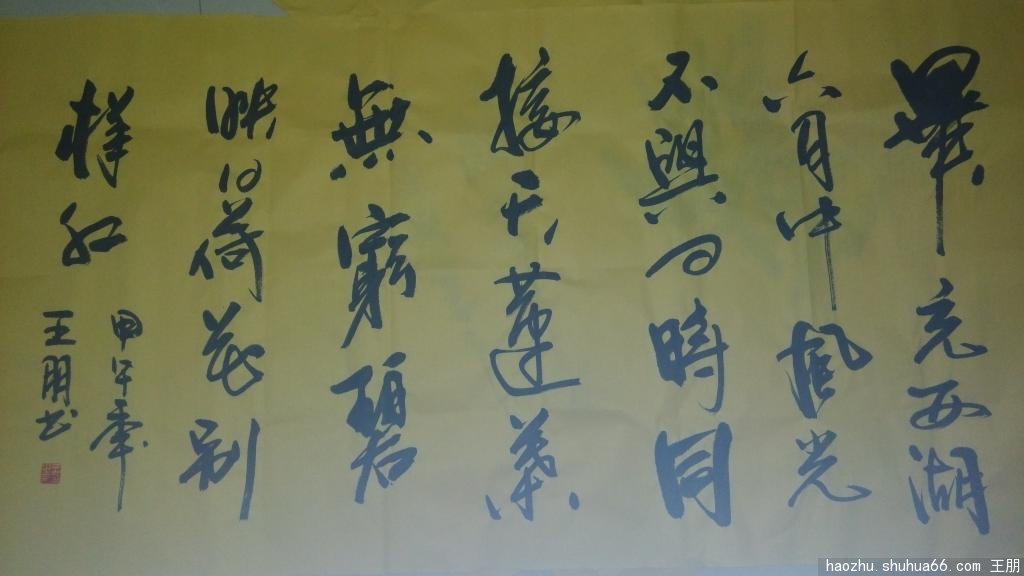 畢竟西湖
六月中風光
不與四時同
接天蓮葉
無窮碧
映日荷花別
樣紅
甲午年
王朋书
haozhu.shuhua66.com 王朋